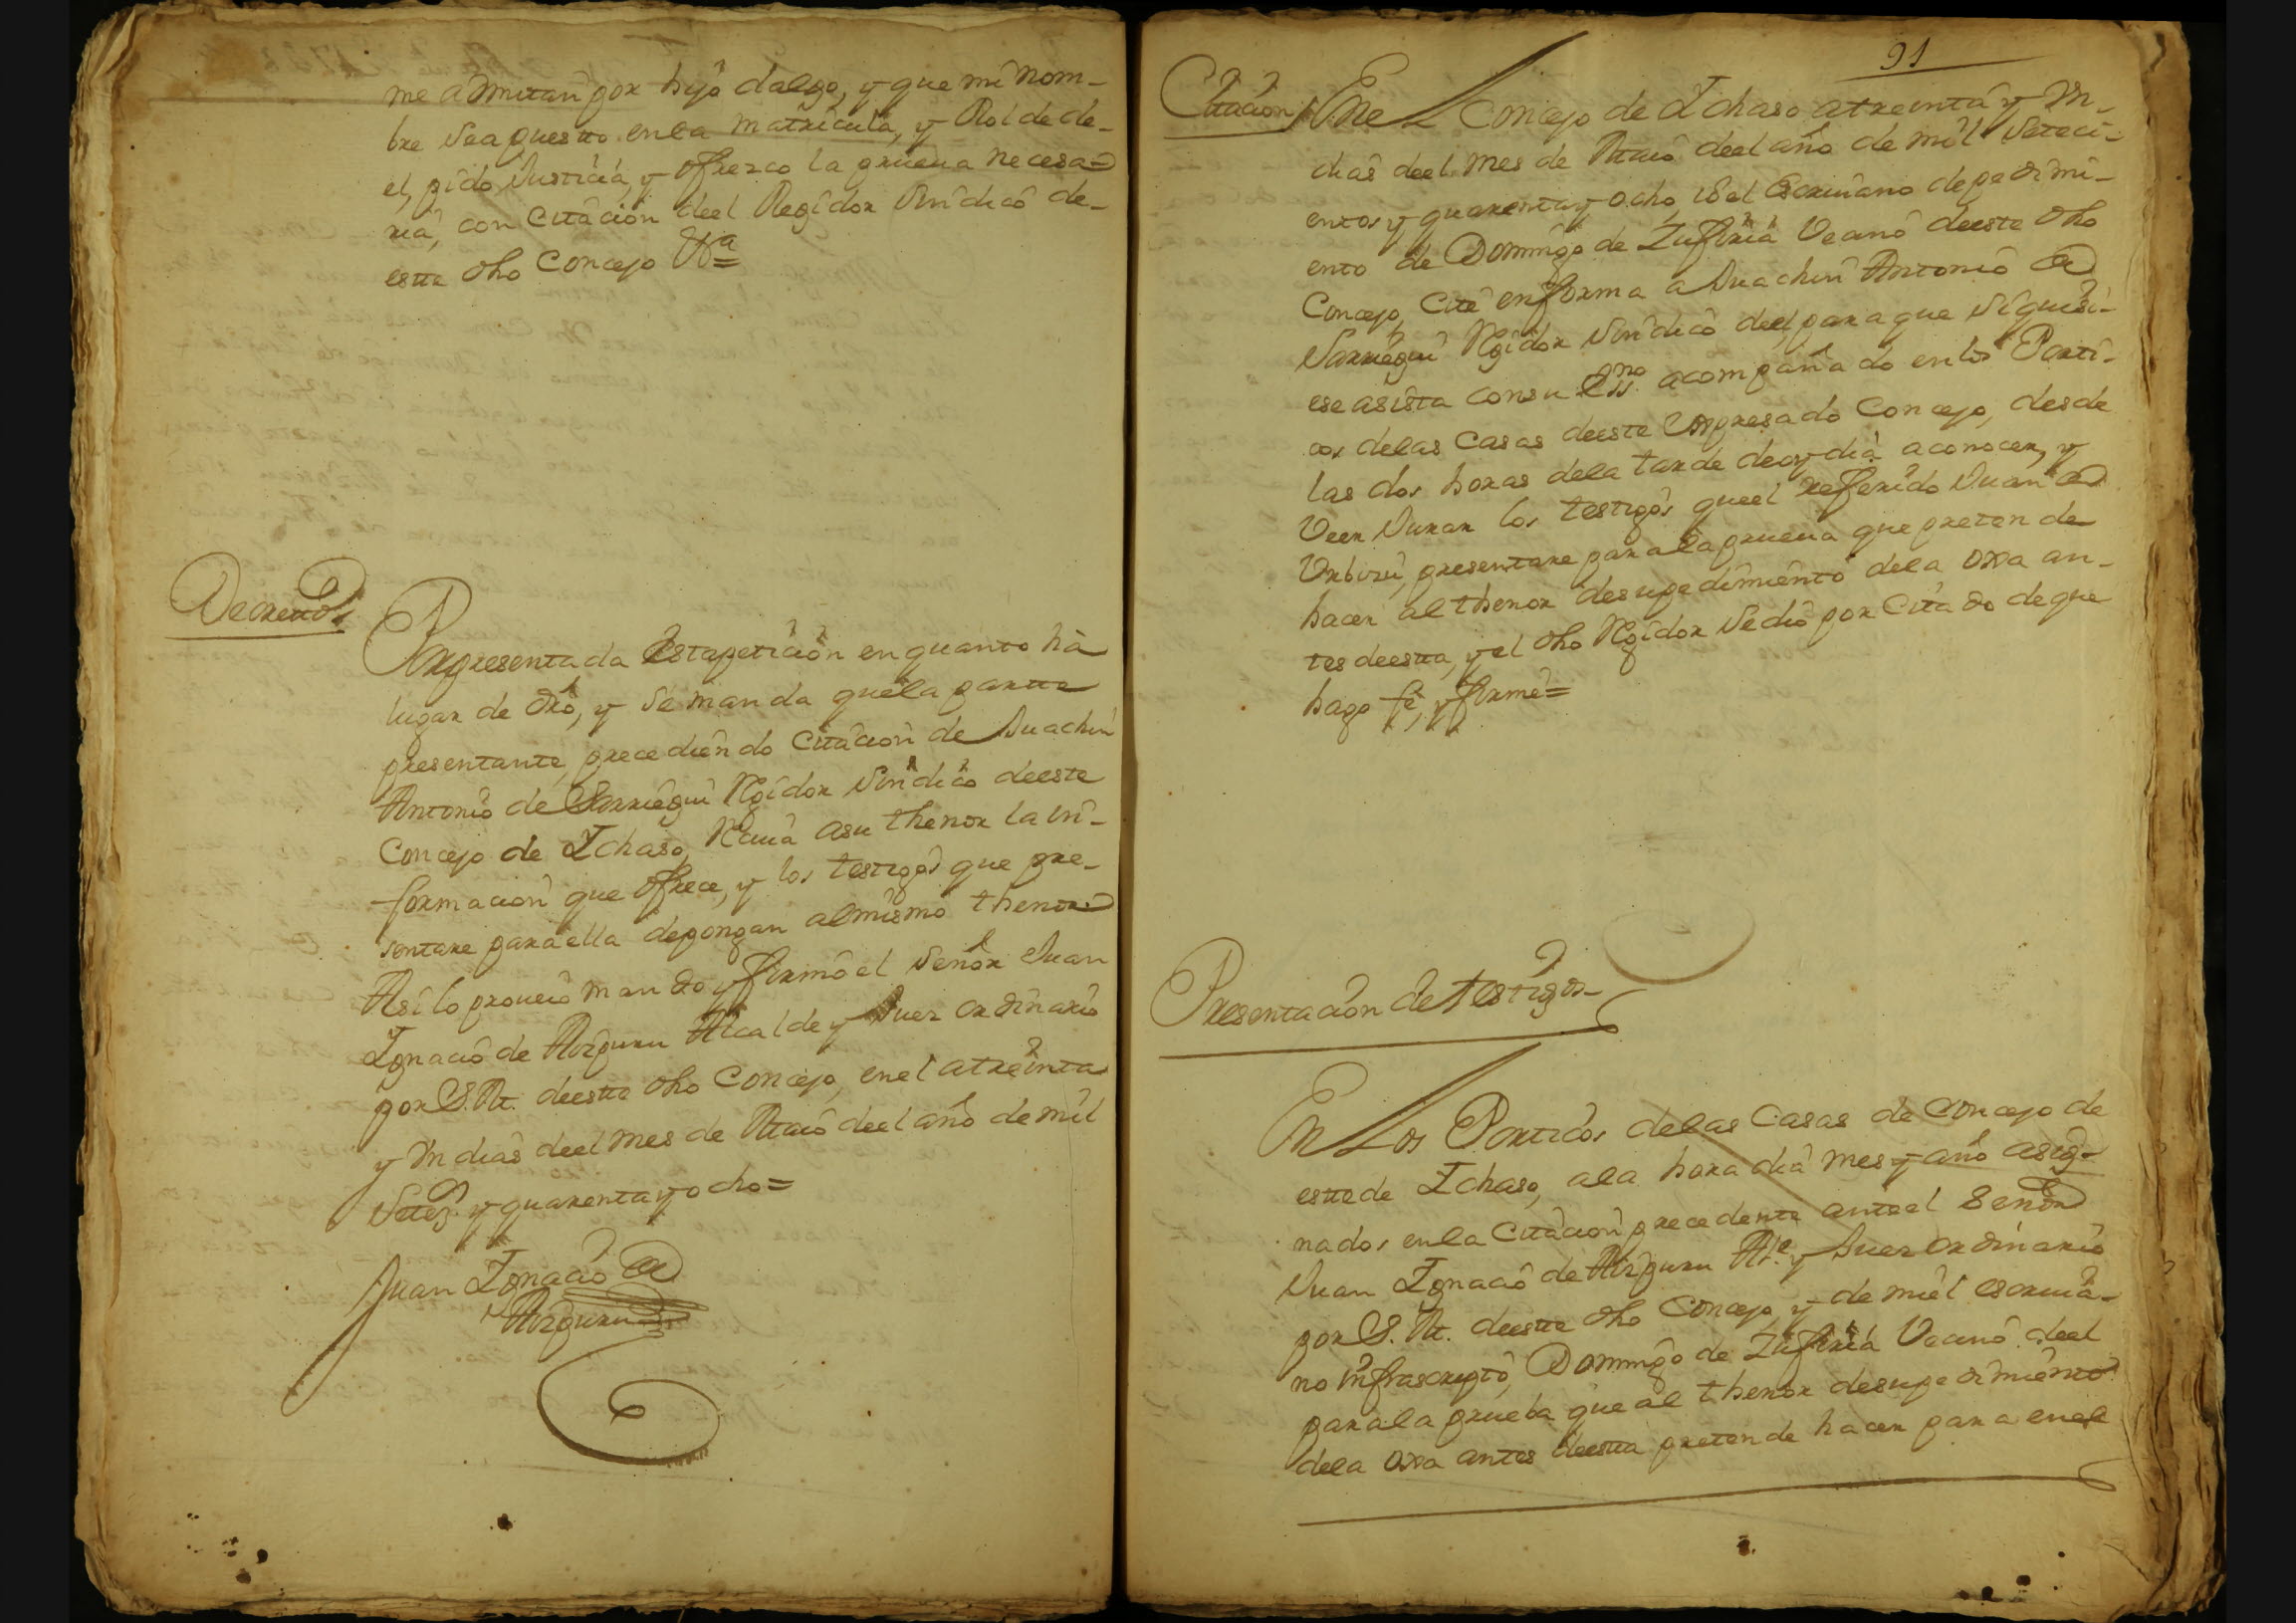 me admitan por hijo dalgo, y que mi nom-
bre sea puesto en la matricula, y Rol de de-
el, pido Justicia, y ofrezco la prueua necesa-
ria, con citacion deel Regidor Sindico de-
este dho Concejo &a=
Decreto
Por presentada esta peticion en quanto há
lugar de dro, y se manda que la parte
presentante, precediendo citacion de Juachin
Antonio de Sarriegui Rgidor Sindico deeste
Concejo de Ichaso, Reciua asu thenor la in-
formacion que ofrece, y los testigos que pre-
sentare para ella depongan al mismo thenor
Asi lo proueió mandó y firmó el Señor Juan
Ignacio de Aizpuru Alcalde y Juez ordinario
por S.M. deeste dho Concejo, en el a treinta
y un dias deel mes de Maio deel año de mil
Setez. y quarenta y ocho=
Juan Ignacio de
Aizpuru
91
Citacion
En el Concejo de Ichaso a treinta y un-
dias deel mes de Maio deel año de mil Seteci-
entos y quarenta y ocho, io el Escriuano de pedimi-
ento de Domingo de Zufiria Vecino deeste dho
Concejo, Cité en forma a Juachin Antonio de
Sarriegui Rgidor Sindico deel, para que si quisi-
ese asista con su Essno acompañado en los Porti-
cos delas Casas deeste expresado Concejo, desde
las dos horas dela tarde de oy dia a conocer, y
Veer Jurar los testigos que el referido Juan de
Urbizu, presentare para la prueua que pretende
hacer al thenor de su pedimiento dela oxa an-
tes deesta, y el dho Rgidor se dió por Citado de que
hago fé, y firmé=
Presentacion de testigos-
En Los Porticos delas Casas de Concejo de
este de Ichaso, ala hora dia mes y año asig-
nados en la Citacion precedente ante el Señor
Juan Ignacio de Aizpuru Ale. y Juez ordinario
por S. M. deeste dho Concejo, y de mi el escriua-
no infrascripto, Domingo de Zufiria Vecino deel
para la prueba que al thenor de su pedimiento
dela oxa antes deesta pretende hacer para en el